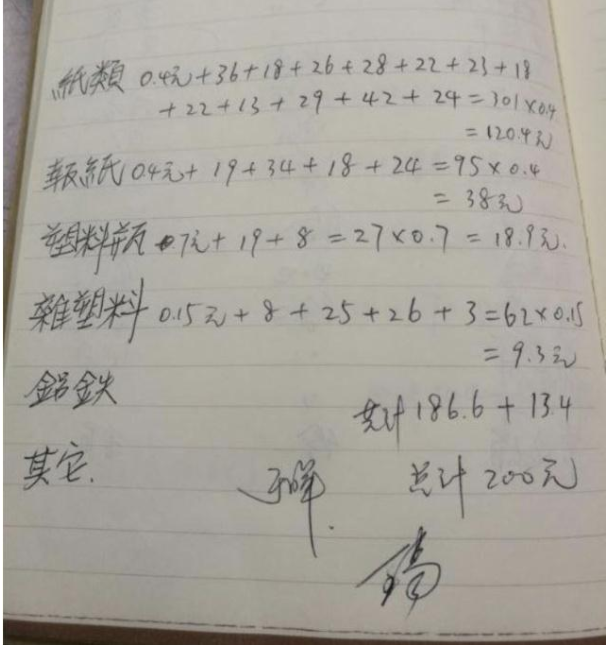 紙類 0.4元+36+18+26+28+22+23+18
+22+13+29+42+24=301×0.4
=120.4元
報紙 0.4元+19+34+18+24=95×0.4
=38元
塑料瓶 0.7元+19+8=27×0.7=18.9元.
雜塑料 0.15元+8+25+26+3=62×0.15
=9.3元
鋁鉄
共计186.6+13.4
其它.
总计200元